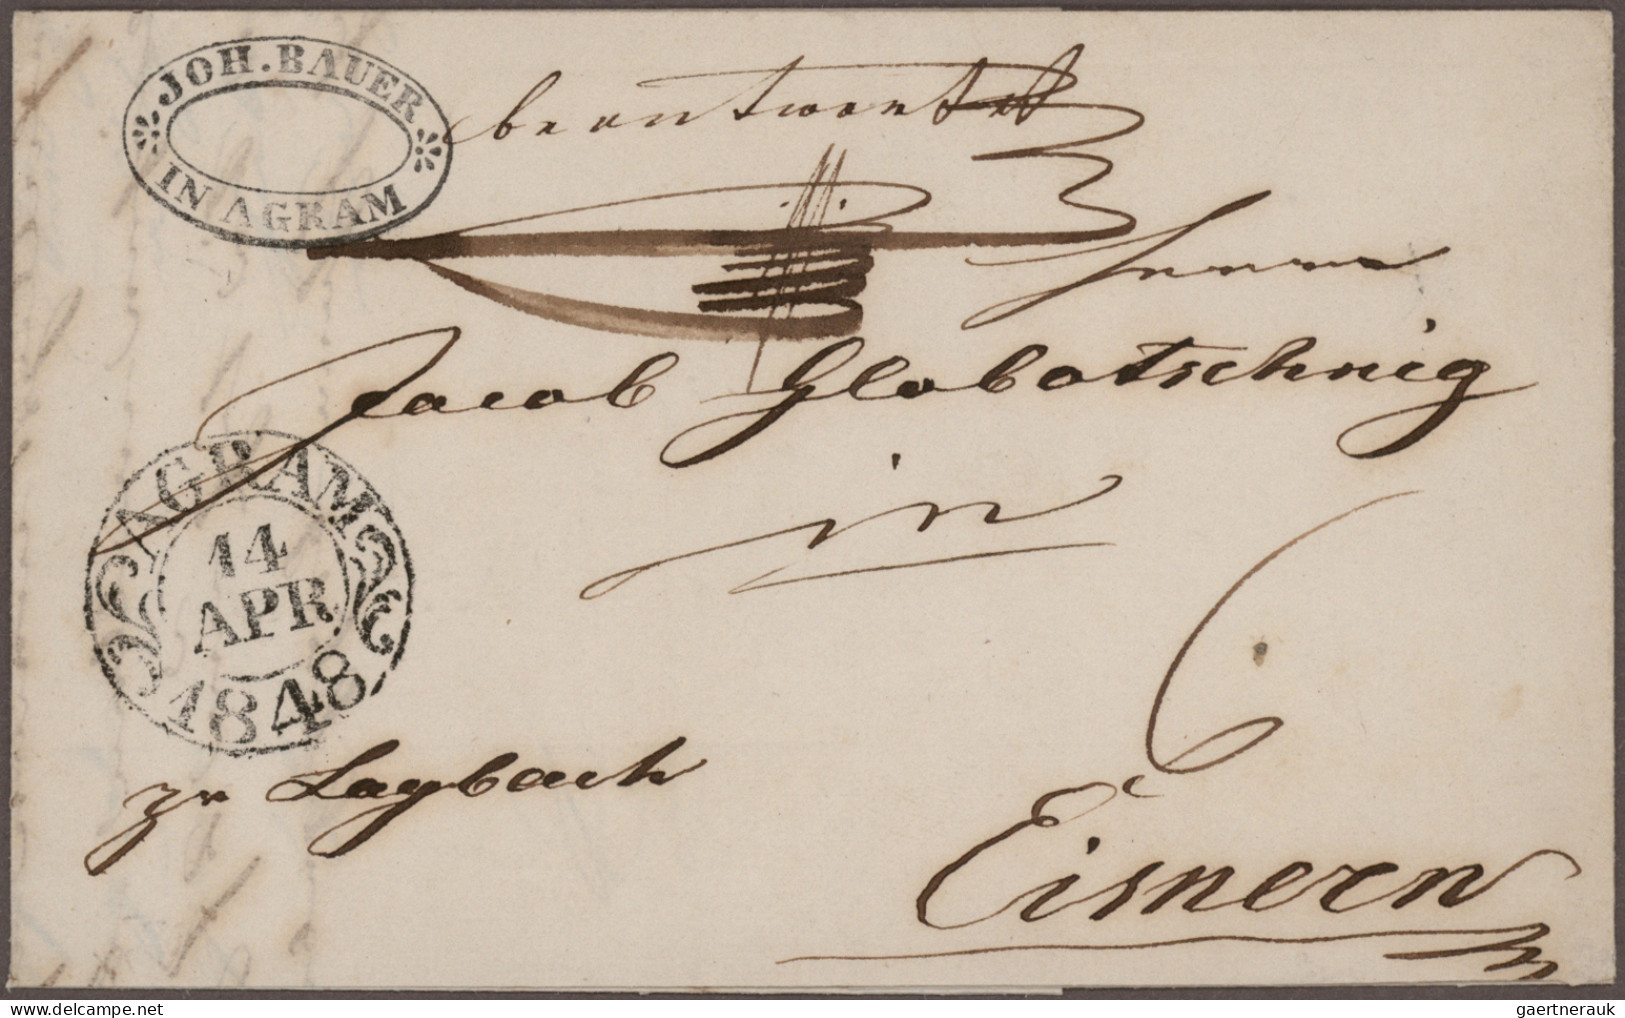 JOH. BAUER
IN AGRAM
beantwortet
Herrn
Jacob Globotschnig
in
AGRAM
14
APR
1848
6
zu Laybach
Eisnern
gaertnerauk